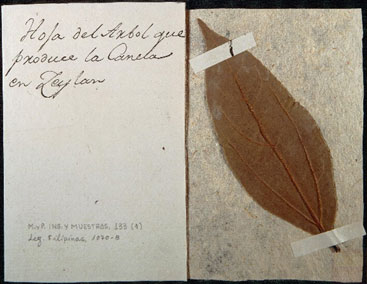 Hoja del Arbol que
produce la Canela
en Zeylan
M. y P. ING. Y MUESTRAS, 133 (1)
Leg. Filipinas 1070-B